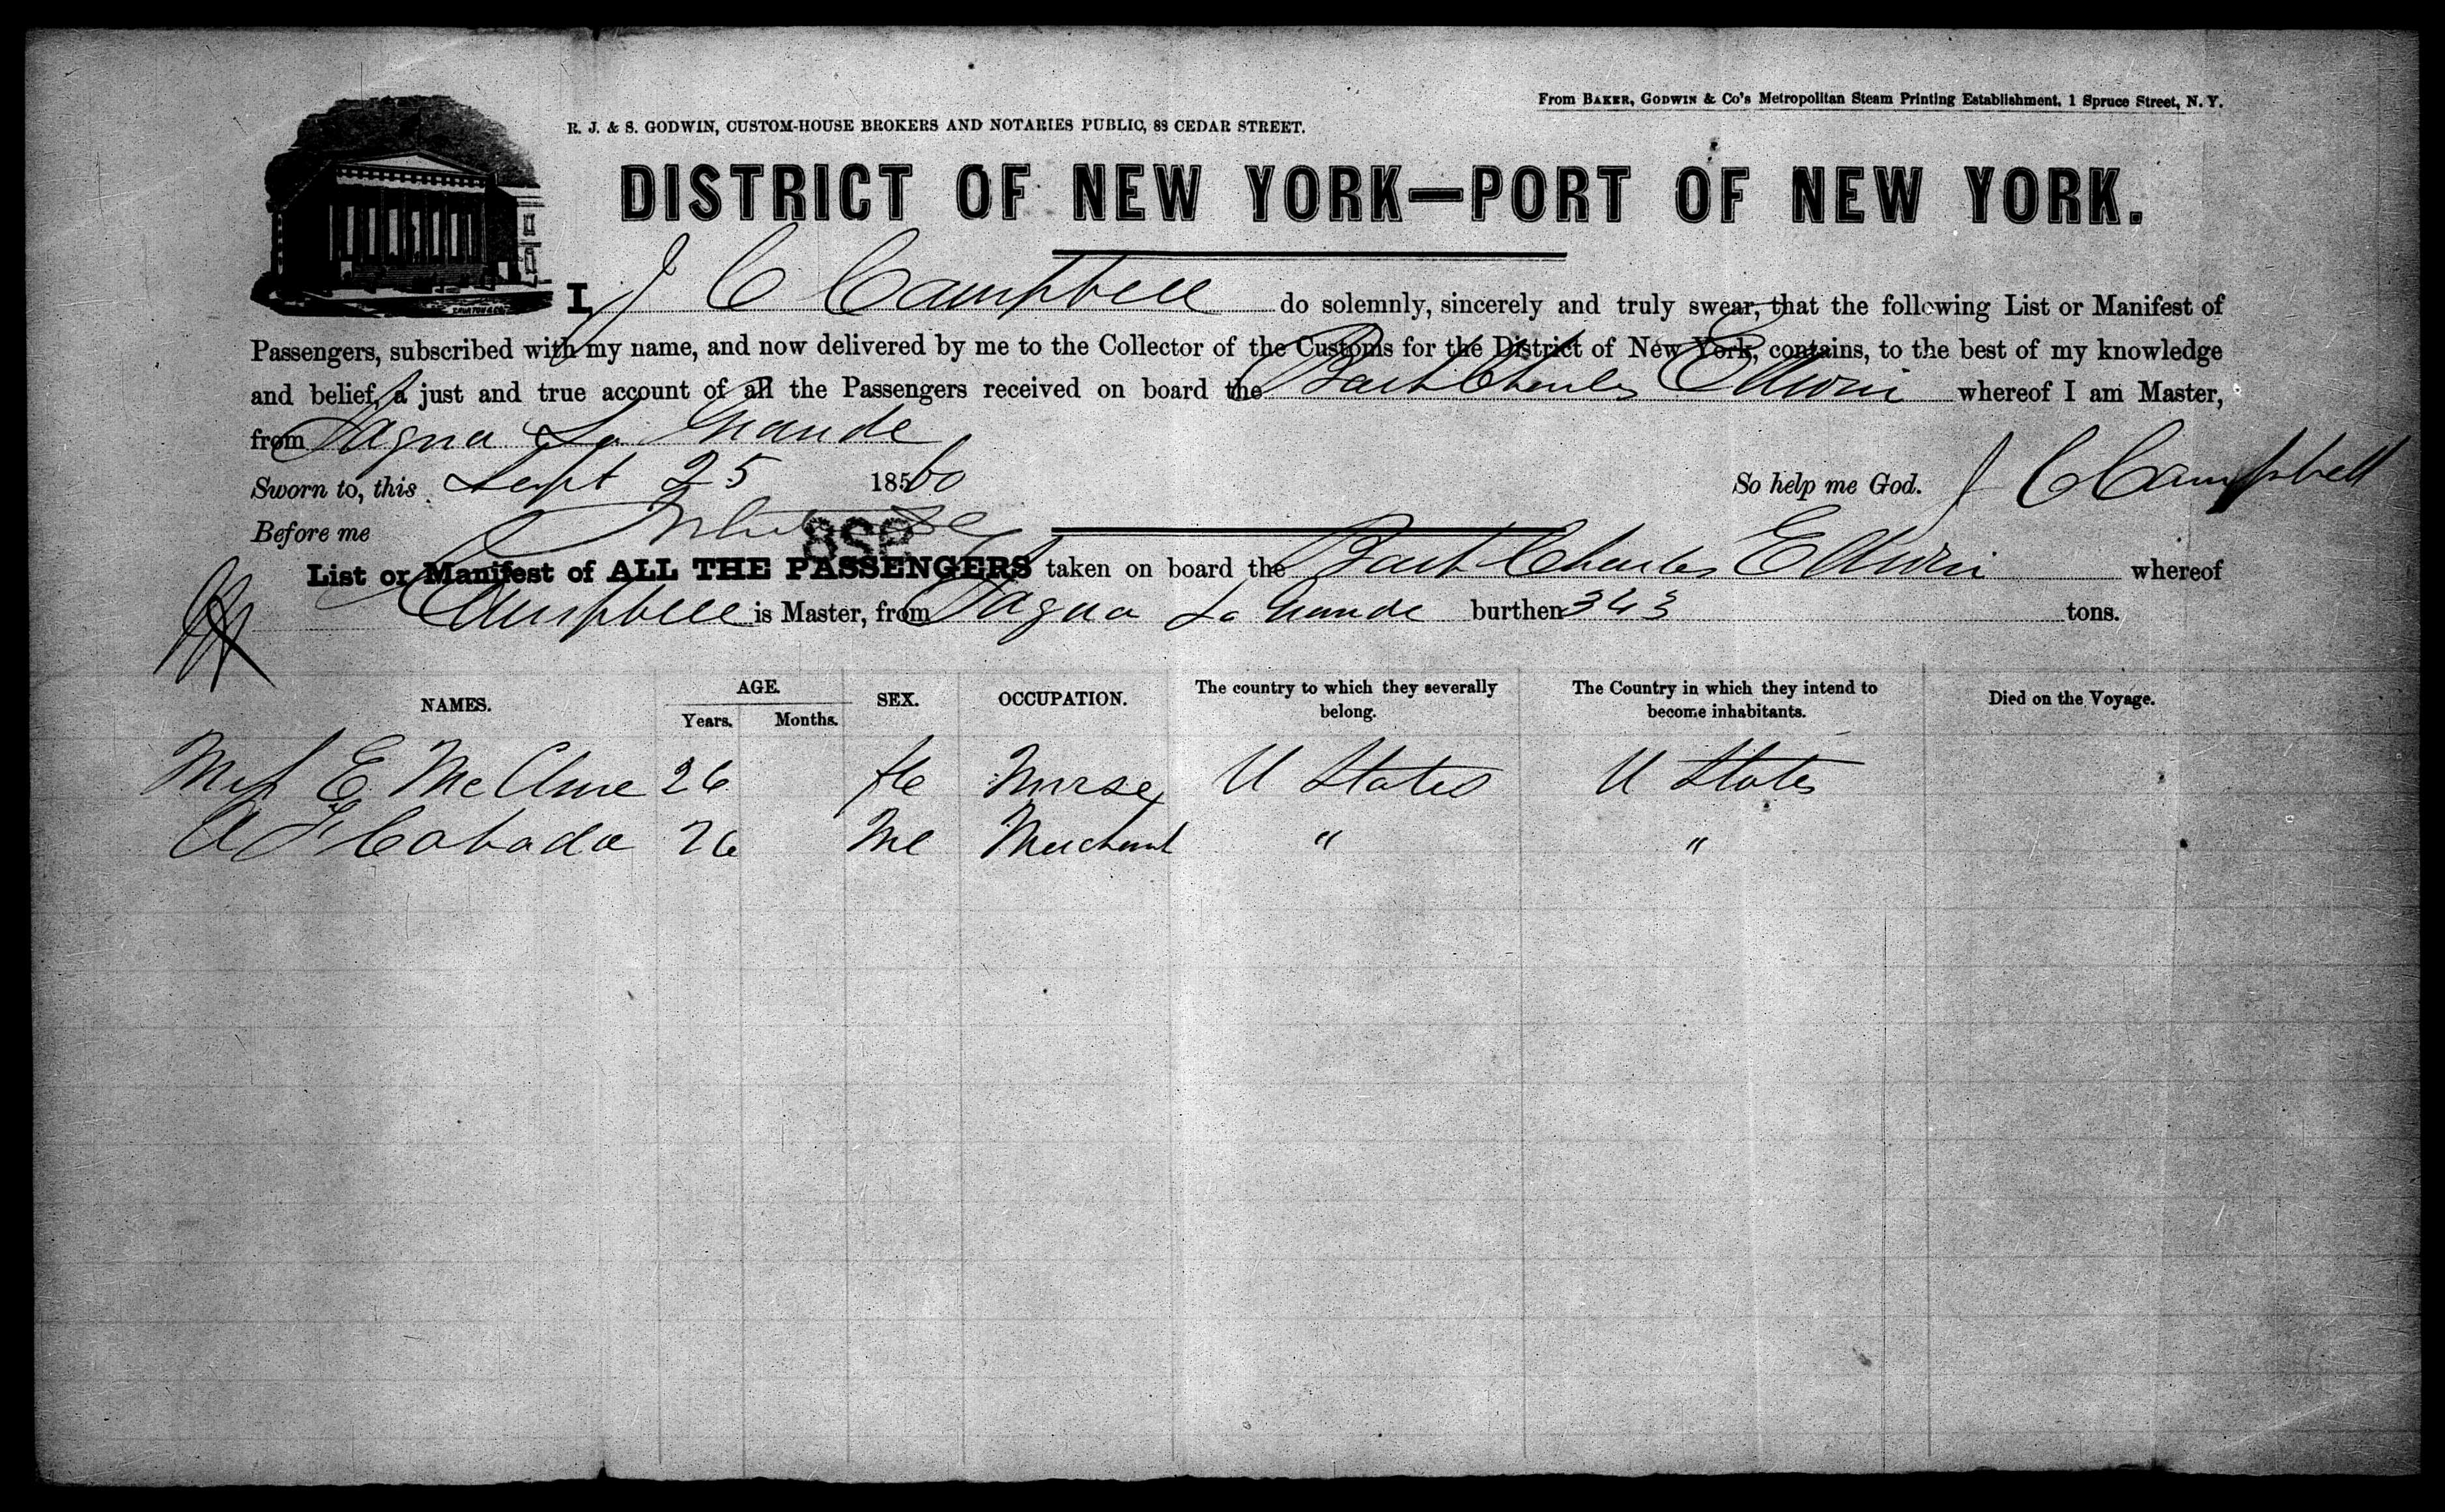 From BAKER, GODWIN & Co's Metropolitan Steam Printing Establishment, 1 Spruce Street, N.Y.
R. J. & S. GODWIN, CUSTOM-HOUSE BROKERS AND NOTARIES PUBLIC, 88 CEDAR STREET.
DISTRICT OF NEW YORK—PORT OF NEW YORK.
I, J C Campbell do solemnly, sincerely and truly swear, that the following List or Manifest of
Passengers, subscribed with my name, and now delivered by me to the Collector of the Customs for the District of New York, contains, to the best of my knowledge
and belief, a just and true account of all the Passengers received on board the Bark Charles Edwin whereof I am Master,
from Sagua La Grande
Sworn to, this Sept 25 18560 So help me God. J C Campbell
Before me
898
List or Manifest of ALL THE PASSENGERS taken on board the Bark Charles Edwin whereof
Campbell is Master, from Sagua La Grande burthen 343 tons.
NAMES. AGE. Years. Months. SEX. OCCUPATION. The country to which they severally belong. The Country in which they intend to become inhabitants. Died on the Voyage.
E McClure 26 fe Nurse U States U States
A F Cabada 26 Me Merchant " "